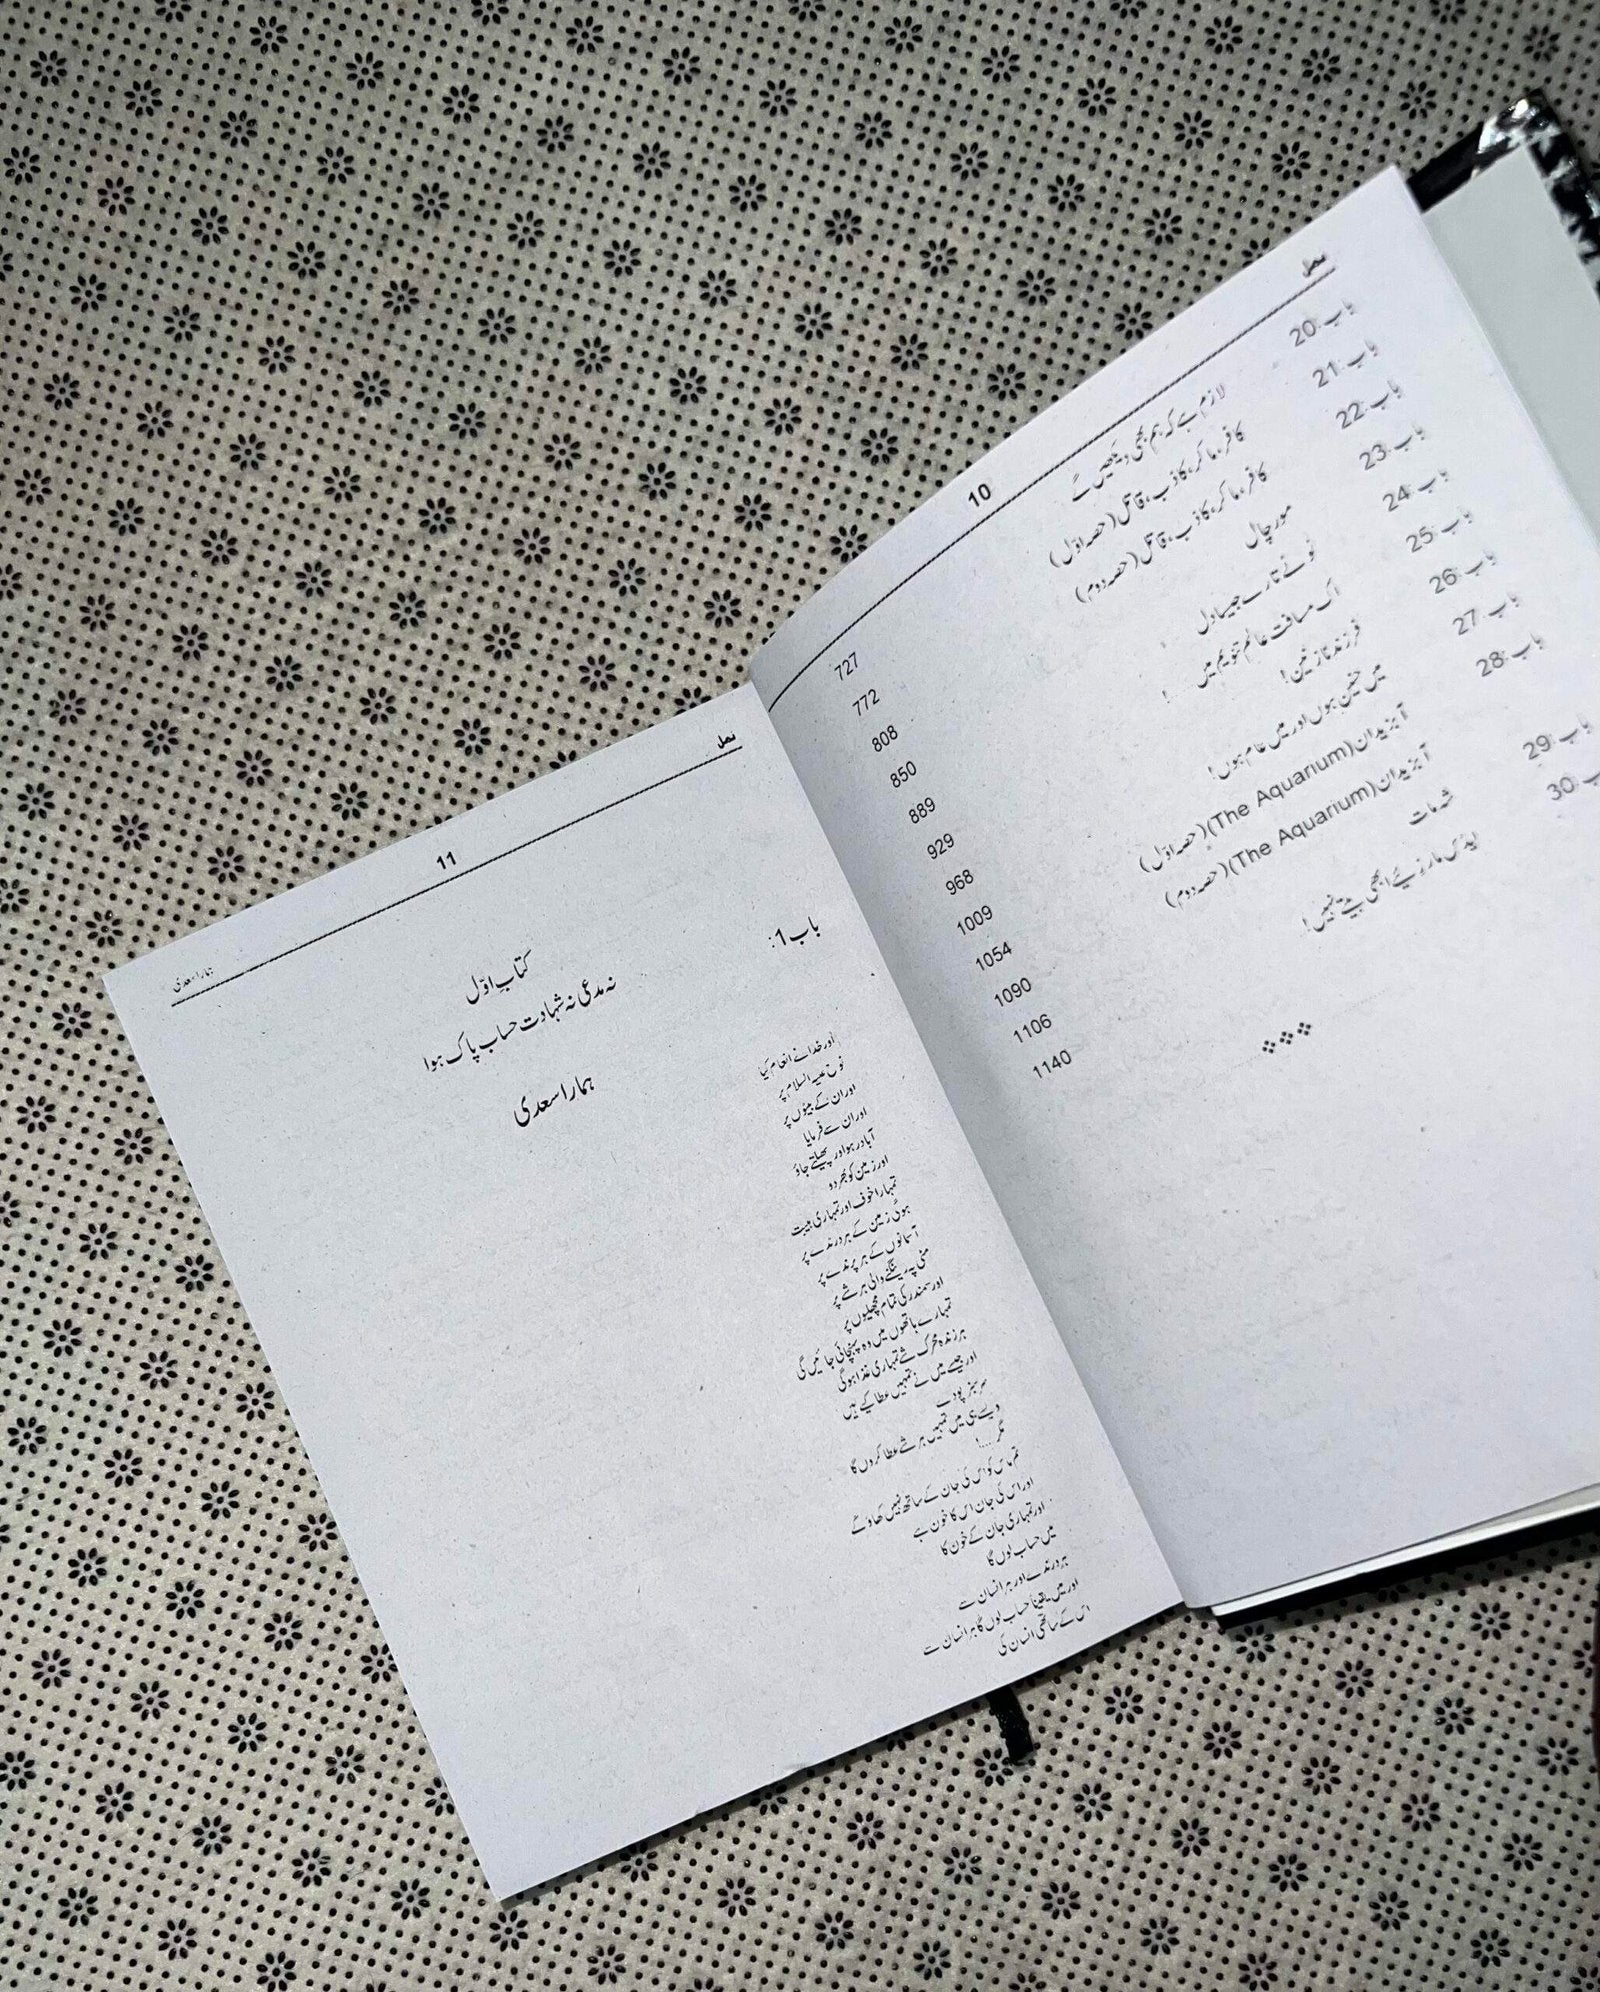 نمل
10
باب 20:
لازم ہے کہ ہم بھی دیکھیں گے
727
باب 21:
کافر، ماکر، کاذب، قاتل (حصہ اوّل)
772
باب 22:
کافر، ماکر، کاذب، قاتل (حصہ دوم)
808
باب 23:
مورچال
850
باب 24:
ٹوٹے تارے جیسا دل
889
باب 25:
اک مسافت عالم تنویم میں ....!
929
باب 26:
فرزندِ نازنین!
968
باب 27:
میں حنین ہوں اور میں عام ہوں!
1009
باب 28:
آبزیدان (The Aquarium) (حصہ اوّل)
1054
آبزیدان (The Aquarium) (حصہ دوم)
1090
باب 29:
شہ مات
1106
باب 30:
ایڈس مارزیئے ابھی بیتے نہیں!
1140
نمل
11
ہمارا سعدی
باب 1:
کتابِ اوّل
نہ مدعی نہ شہادت حساب پاک ہوا
ہمارا سعدی
اور خدا نے انعام کیا
نوح علیہ السلام پر
اور ان کے بیٹوں پر
اور ان سے فرمایا
آباد رہو اور پھیلتے جاؤ
اور زمین کو بھر دو
تمہارا خوف اور تمہاری ہیبت
ہوگی زمین کے ہر درندے پر
آسمانوں کے ہر پرندے پر
مٹی پہ رینگنے والی ہر شے پر
اور سمندر کی تمام مچھلیوں پر
تمہارے ہاتھوں میں وہ پہنچائی جائیں گی
ہر زندہ متحرک شے تمہاری غذا ہوگی
اور جیسے میں نے تمہیں عطا کیے ہیں
سرسبز پودے
ویسے ہی میں تمہیں ہر شے عطا کروں گا
مگر....!
تم ماس کو اس کی جان کے ساتھ نہیں کھاؤ گے
اور اس کی جان اس کا خون ہے
اور تمہاری جان کے خون کا
میں حساب لوں گا
ہر درندے اور ہر انسان سے
اور میں یقیناً حساب لوں گا ہر انسان سے
اس کے ساتھی انسان کی